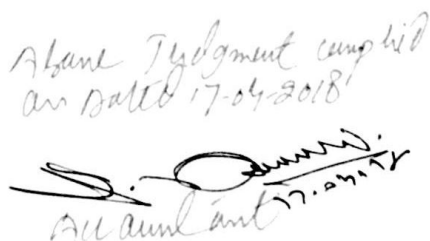 Above Judgment complied
on dated 17-04-2018
17.04.18
Accountant